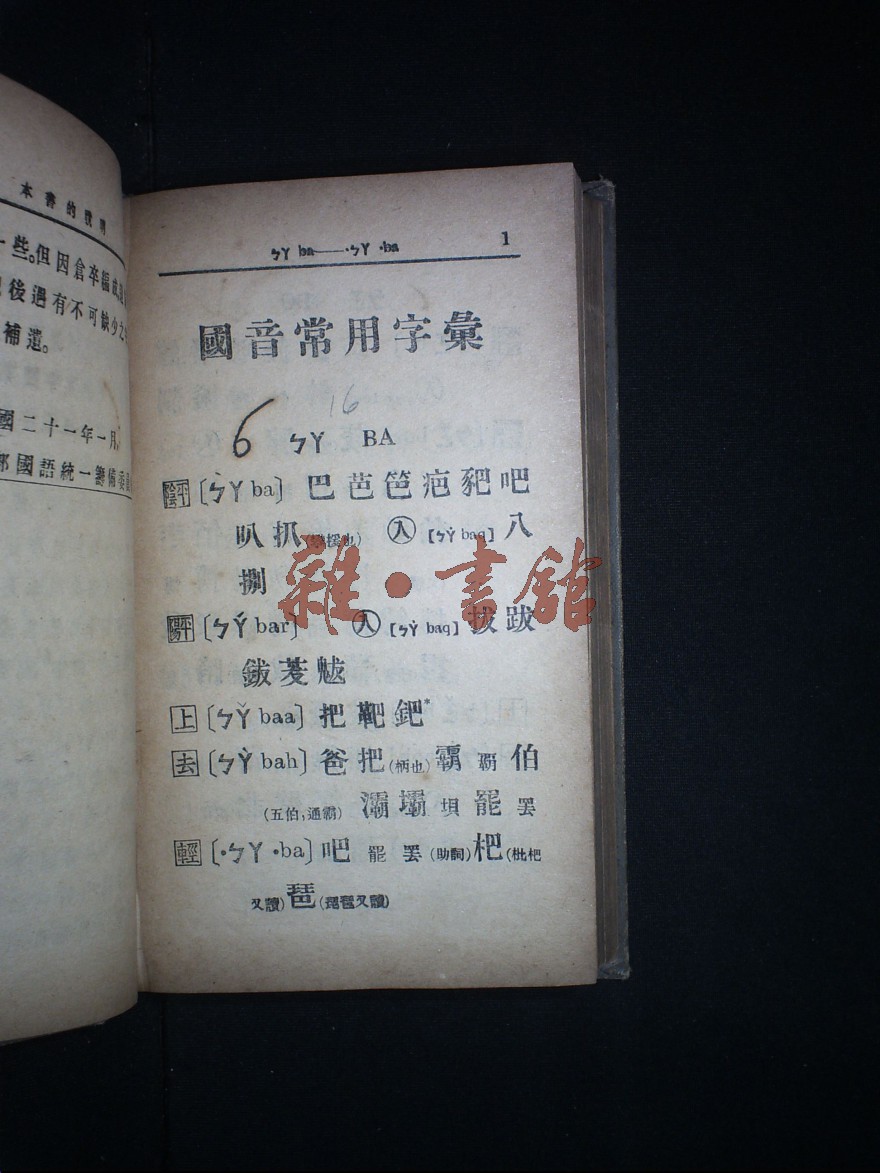 本書的說明
一些。但因倉卒編成,
後遇有不可缺少之
補遺。
國二十一年一月,
部國語統一籌備委
ㄅㄚ ba——·ㄅㄚ ·ba 1
國音常用字彙
6 16
ㄅㄚ BA
陰平 〔ㄅㄚ ba〕 巴芭笆疤豝吧
叭扒 入 [ㄅㄚ̇ baq] 八
捌
陽平 〔ㄅㄚˊ bar〕 入 [ㄅㄚ̇ baq] 拔跋
鈸茇魃
上 〔ㄅㄚˇ baa〕 把靶鈀*
去 〔ㄅㄚˋ bah〕 爸把(柄也)霸覇伯
(五伯,通霸) 灞壩垻罷罢
輕 〔·ㄅㄚ ·ba〕 吧罷罢(助詞)杷(枇杷
又讀)琶(琵琶又讀)
雜·書館